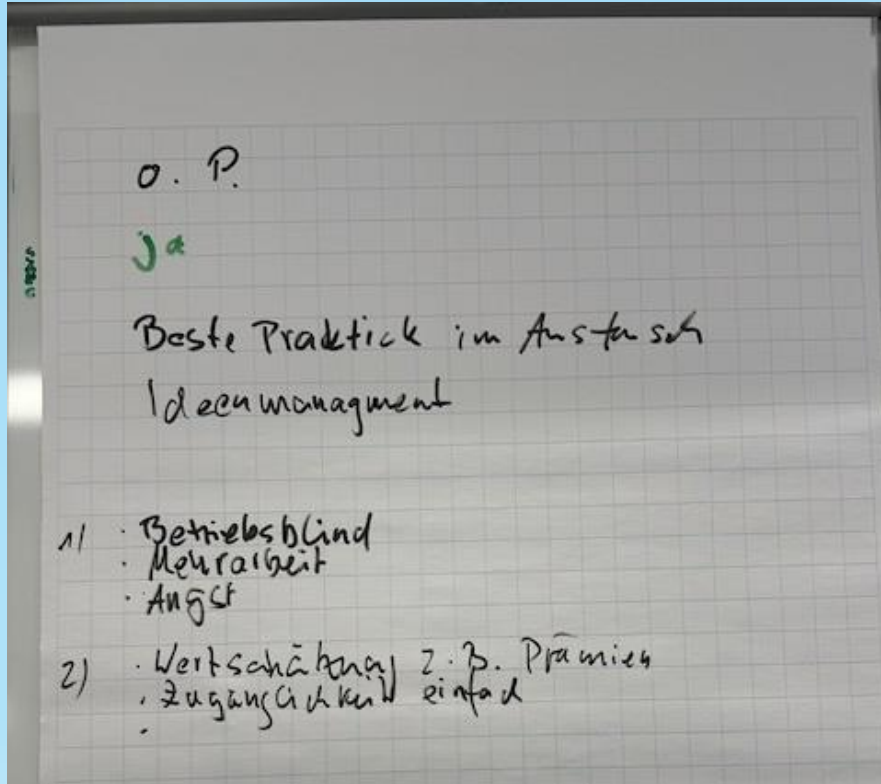 O. P.
ja
Beste Praktick im Austausch
Ideenmanagment
1) · Betriebsblind
· Mehrarbeit
· Angst
2) · Wertschätzung z. B. Prämien
· Zugänglichkeit einfach
·